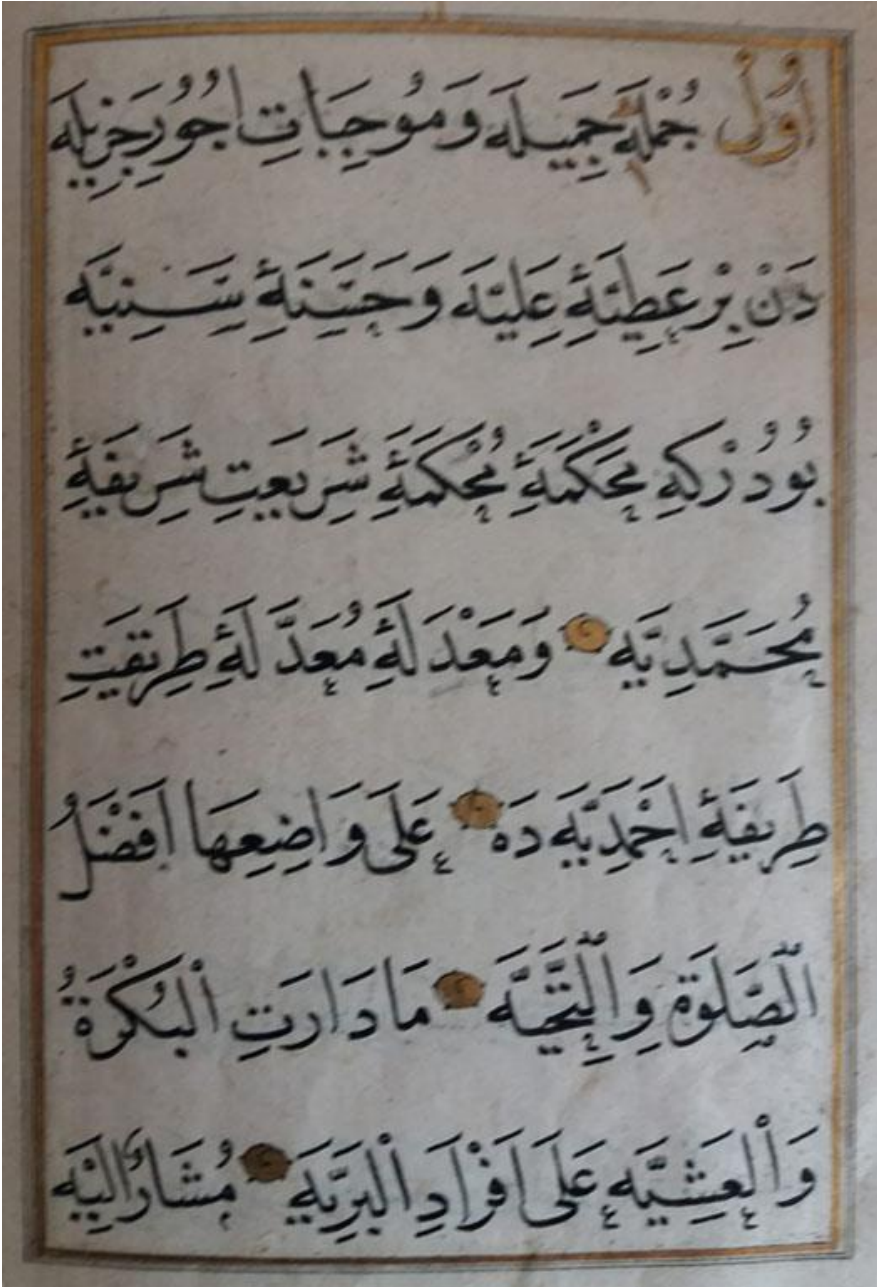 اُوُلْ جُمْلَهٔ جَمِيلَه وَمُوجِبَاتِ اُجُورِ جَزِيلَه
دَنْ بِرْ عَطِيَّهٔ عَلِيَّه وَحَسَنَهٔ سَنِيَّه
بُودُرْكِهِ مَحْكَمَهٔ مُحْكَمَهٔ شَرِيعَتِ شَرِيفَهٔ
مُحَمَّدِيَّه وَمَعْدَلَهٔ مُعَدَّلَهٔ طَرِيقَتِ
طَرِيفَهٔ اَحْمَدِيَّه دَه عَلَى وَاضِعِهَا اَفْضَلُ
الصَّلَوةِ وَالتَّحِيَّه مَا دَارَتِ الْبُكْرَةُ
وَالْعَشِيَّه عَلَى اَفْرَادِ الْبَرِيَّه مُشَارٌ اِلَيْه